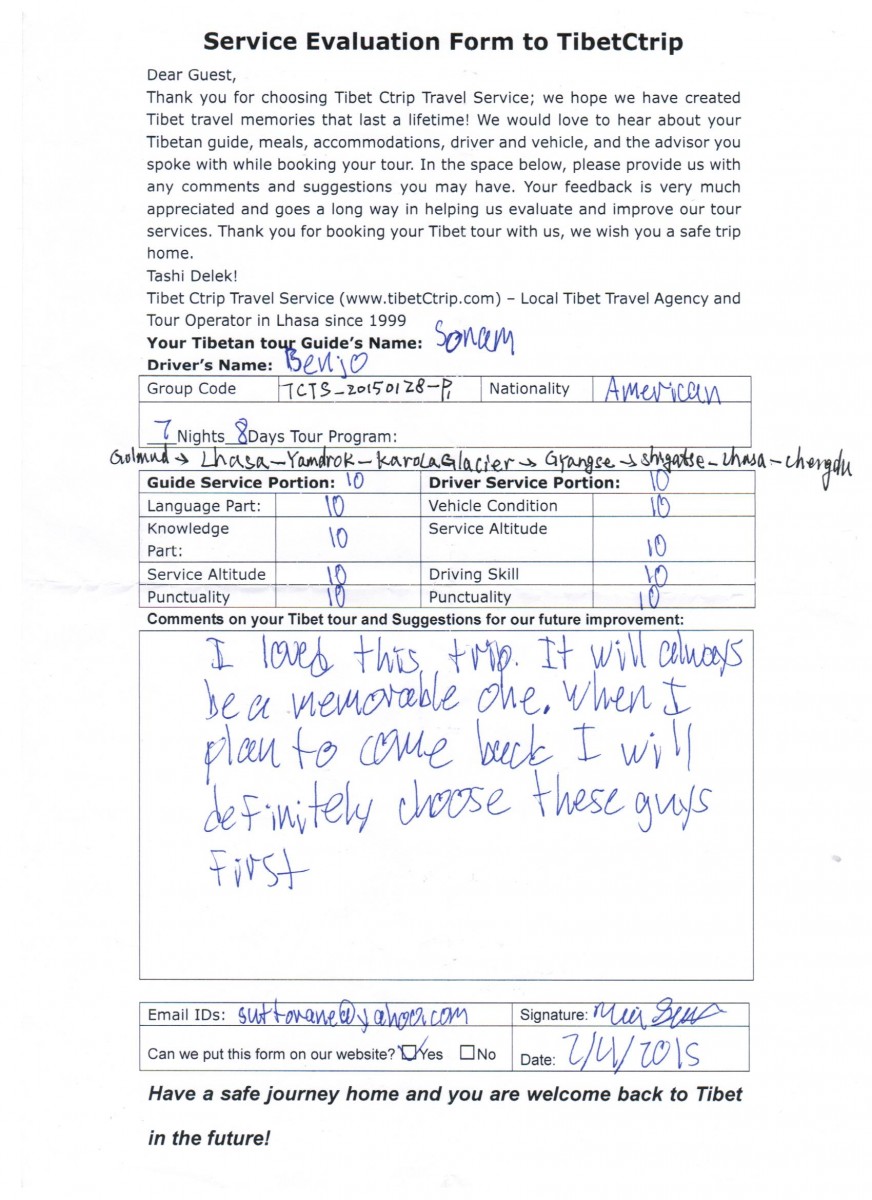 Service Evaluation Form to TibetCtrip
Dear Guest,
Thank you for choosing Tibet Ctrip Travel Service; we hope we have created
Tibet travel memories that last a lifetime! We would love to hear about your
Tibetan guide, meals, accommodations, driver and vehicle, and the advisor you
spoke with while booking your tour. In the space below, please provide us with
any comments and suggestions you may have. Your feedback is very much
appreciated and goes a long way in helping us evaluate and improve our tour
services. Thank you for booking your Tibet tour with us, we wish you a safe trip
home.
Tashi Delek!
Tibet Ctrip Travel Service (www.tibetCtrip.com) – Local Tibet Travel Agency and
Tour Operator in Lhasa since 1999
Your Tibetan tour Guide's Name: Sonam
Driver's Name: Benjo
Group Code TCTS-20150128-P1 Nationality American
7 Nights 8 Days Tour Program:
Golmud → Lhasa-Yamdrok-Karola Glacier → Gyangse → shigatse-Lhasa-chengdu
Guide Service Portion: 10 Driver Service Portion: 10
Language Part: 10 Vehicle Condition 10
Knowledge Part: 10 Service Altitude 10
Service Altitude 10 Driving Skill 10
Punctuality 10 Punctuality 10
Comments on your Tibet tour and Suggestions for our future improvement:
I loved this trip. It will always
be a memorable one. When I
plan to come back I will
definitely choose these guys
first
Email IDs: suttovane@yahoo.com Signature:
Can we put this form on our website? Yes No Date: 2/4/2015
Have a safe journey home and you are welcome back to Tibet
in the future!